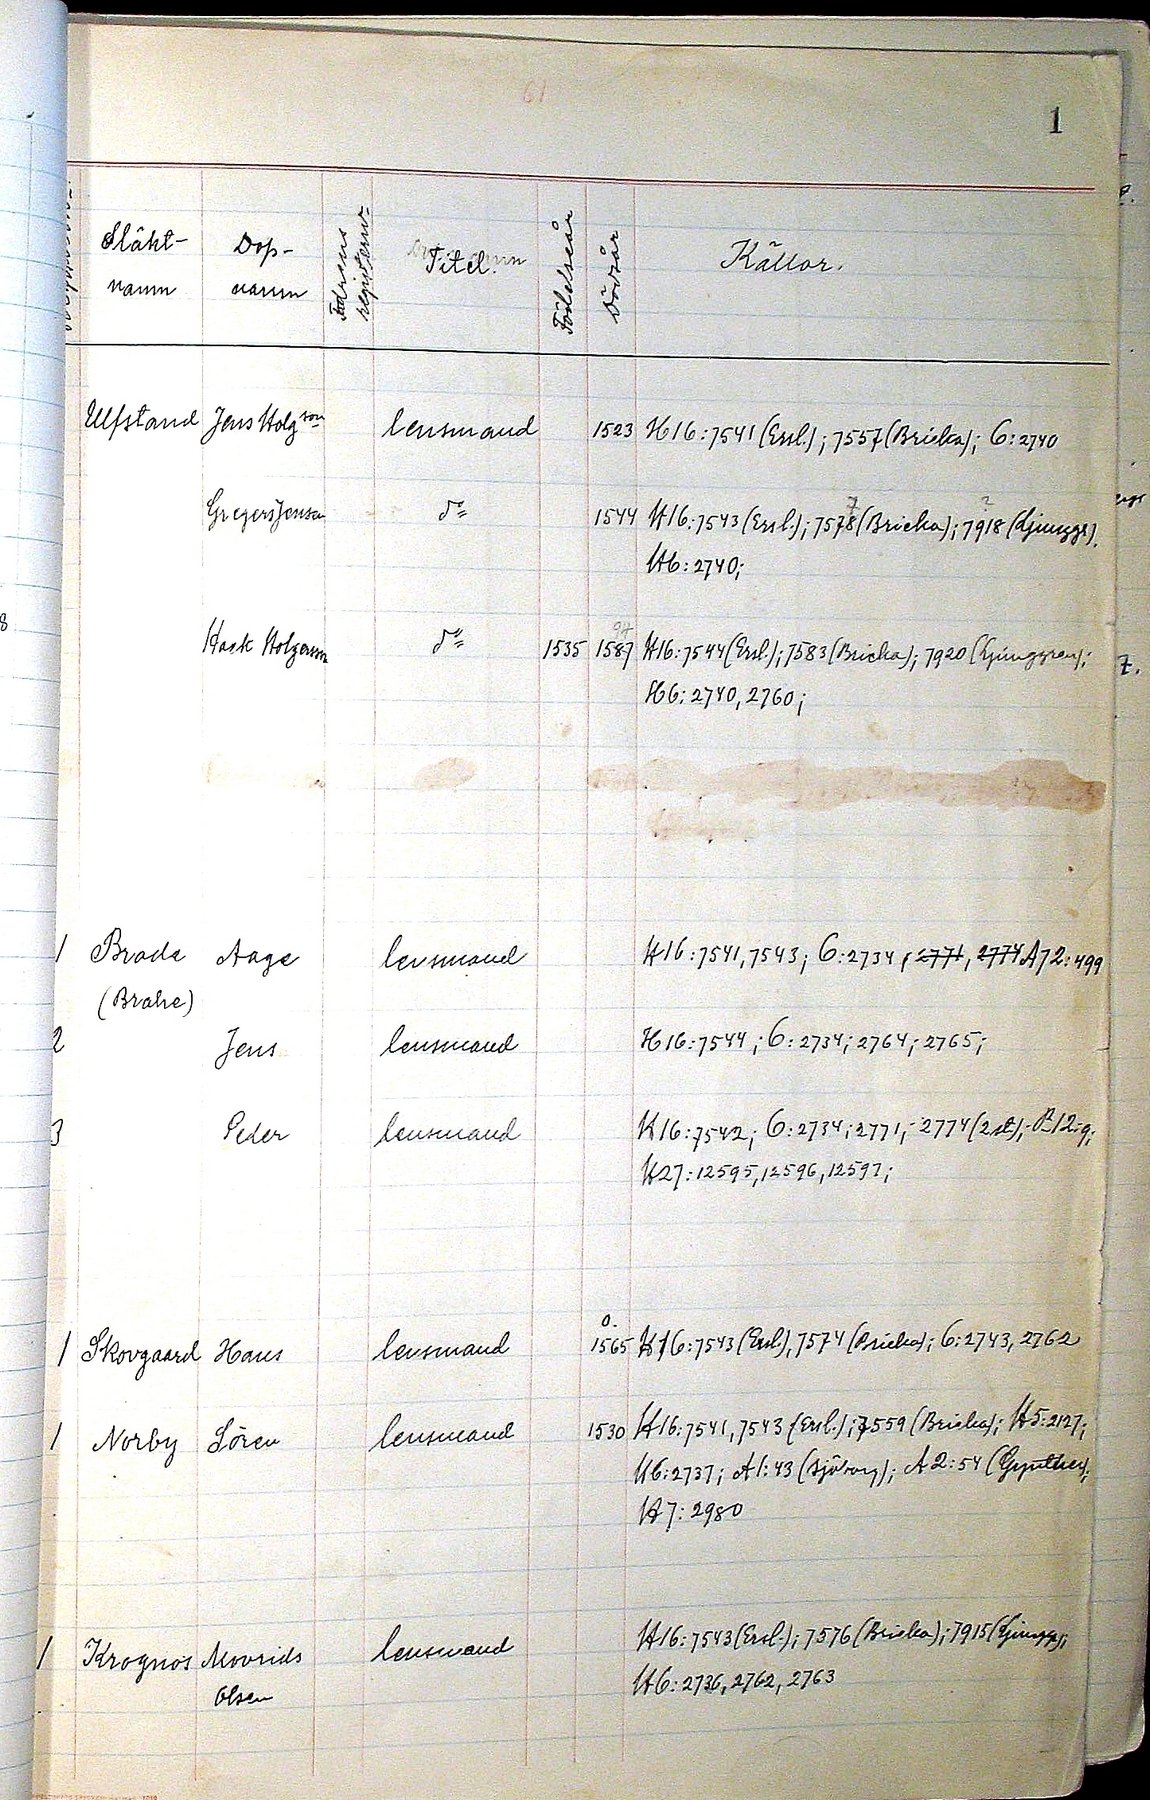 61
1
Släkt-
namn
Dop-
namn
registers
Titel.
Födelseår
Dödsår
Källor.
Ulfstand Jens Holg son lensmand 1523 H16:7541 (Ersl.); 7557 (Bricka); 6:2740
Gregers Jensen d:o 1544 H16:7543 (Ersl.); 7578 (Bricka); 7918 (Ljunggr.).
H6:2740;
Hack Holgersen d:o 1535 1587 H16:7544 (Ersl.); 7583 (Bricka); 7920 (Ljunggren);
H6:2740, 2760;
1 Brade Aage lensmand H16:7541, 7543; 6:2734, 2771, 2774 A72:499
(Brahe)
2 Jens lensmand H16:7544; 6:2734; 2764; 2765;
3 Peder lensmand H16:7542; 6:2734; 2771; 2774 (2 st); P12:9;
H27:12595, 12596, 12597;
o.
1 Skovgaard Hans lensmand 1565 H16:7543 (Ersl.), 7574 (Bricka); 6:2743, 2762
1 Norby Sören lensmand 1530 H16:7541, 7543 (Ersl.); 7559 (Bricka); H5:2127;
H6:2737; A1:43 (Sjövary); A2:54
H7:2980
1 Krognos Movrids lensmand H16:7543 (Ersl.); 7576 (Bricka); 7915 (Ljunggr.);
Olsen H6:2736, 2762, 2763